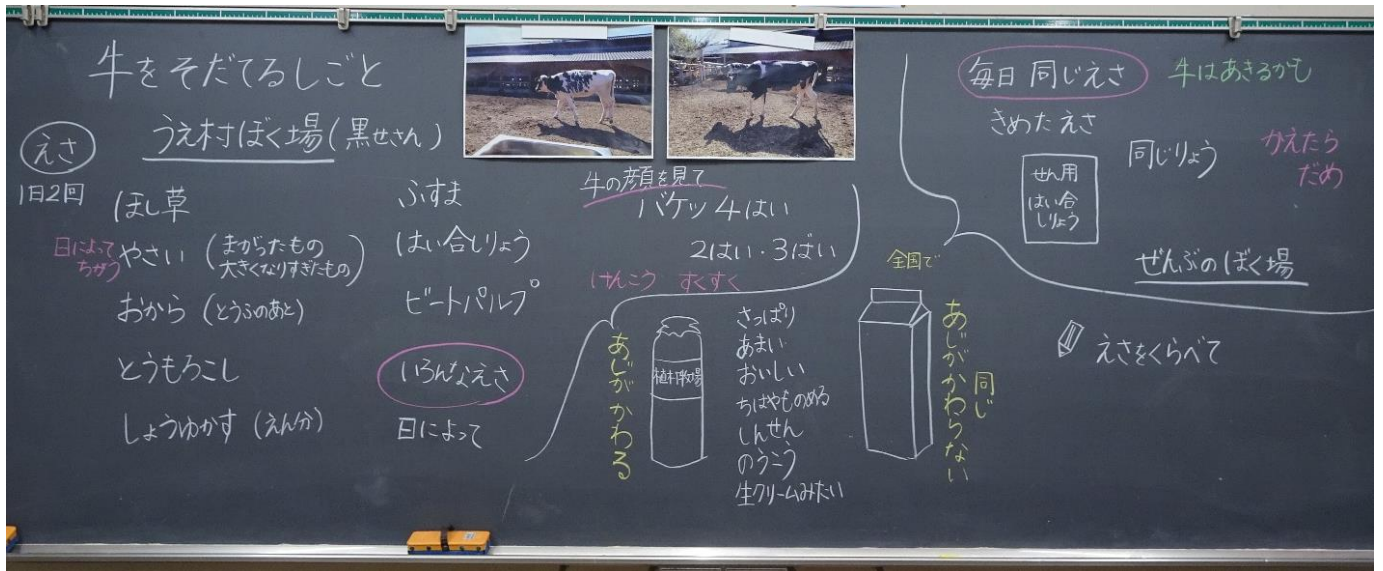 牛をそだてるしごと
うえ村ぼく場(黒せさん)
えさ
1日2回
ほし草
日によって
ちがう
やさい(まがったもの
大きくなりすぎたもの)
おから(とうふのあと)
とうもろこし
しょうゆかす(えん分)
ふすま
はい合しりょう
ビートパルプ
いろんなえさ
日によって
牛の顔を見て
バケツ4はい
2はい・3ばい
けんこう すくすく
あじがかわる
植村牧場
さっぱり
あまい
おいしい
ちはやものめる
しんせん
のうこう
生クリームみたい
全国で
同じ
あじがかわらない
毎日同じえさ
牛はあきるかも
きめたえさ
同じりょう
かえたら
だめ
せん用
はい合
しりょう
ぜんぶのぼく場
えさをくらべて